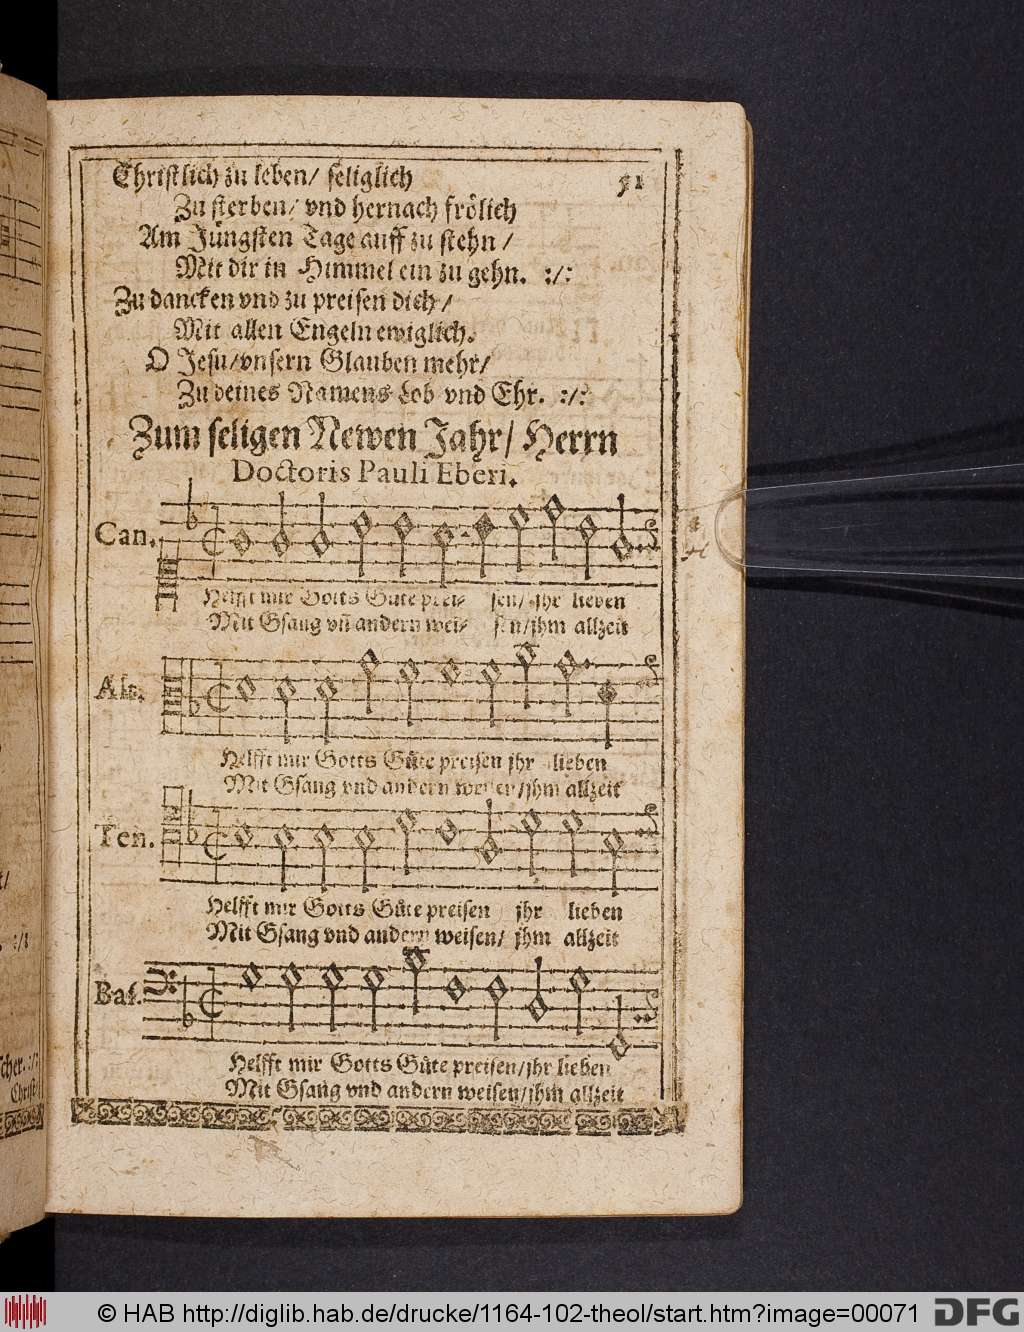 Christlich zu leben/ seliglich 51
Zu sterben/ vnd hernach frölich
Am Jüngsten Tage auff zu stehn /
Mit dir in Himmel ein zu gehn. :/:
Zu dancken vnd zu preisen dich/
Mit allen Engeln ewiglich.
O Jesu/vnsern Glauben mehr/
Zu deines Namens Lob vnd Ehr. :/:
Zum seligen Newen Jahr/ Herrn
Doctoris Pauli Eberi.
Can.
Helfft mir Gotts Güte prei- sen/ jhr lieben
Mit Gsang vñ andern wei- sen/jhm allzeit
Alt.
Helfft mir Gotts Güte preisen jhr lieben
Mit Gsang vnd andern weisen/jhm allzeit
Ten.
Helfft mir Gotts Güte preisen jhr lieben
Mit Gsang vnd andern weisen/ jhm allzeit
Bas.
Helfft mir Gotts Güte preisen/jhr lieben
Mit Gsang vnd andern weisen/jhm allzeit
© HAB http://diglib.hab.de/drucke/1164-102-theol/start.htm?image=00071
DFG